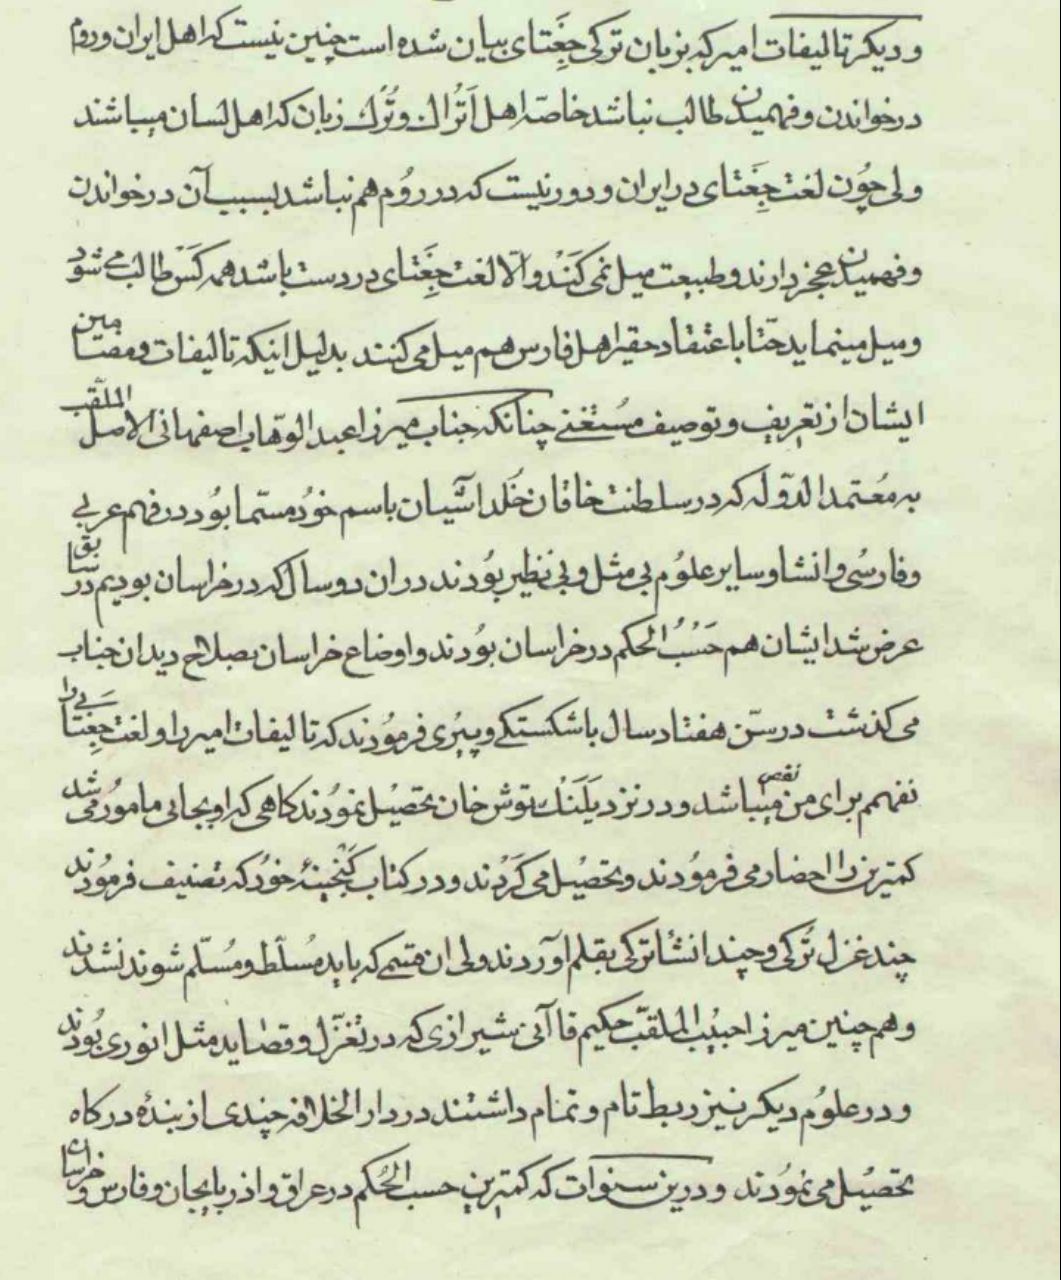 و دیکر تالیفات امیر که بزبان ترکی جِغَتای بیان شده است چنین نیست که اهل ایران و روم
در خواندن و فهمیدن طالب نباشد خاصّه اهل اَتْراک و تُرک زبان که اهل لسان میباشند
ولی چوُن لغت جِغَتای در ایران و دور نیست که در روُم هم نباشد بسبب آن در خواندن
و فهمیدن عجز دارند و طبیعت میل نمی کَنَنْد و الّا لغت جِغَتای در دست باشد همه کَسْ طالب می شود
و میل مینماید حتّا باعتقاد حقیر اهل فارس هم میل می کنند بدلیل اینکه تالیفات و مضامین
ایشان از تعریف و توصیف مُسْتَغنے چنانکه جناب میرزا عبد الوهّاب اصفهانی الاصل الملقّب
به مُعْتمد الدّوله که در سلطنت خاقان خُلد اشیان باسم خوُد مسمّا بوُد در فهم عربی
و فارسُی و انشا و سایر علوُم بی مثل و بی نظیر بوُدند در ان دو سال که در خراسان بودیم در سابق
عرض شد ایشان هم حَسْبُ الحکم در خراسان بوُدند و اوضاع خراسان بصلاح دیدان جناب
می کذشت در سنّ هفتاد سال با شکستکے و پیرُی فرموُدند که تالیفات امیر را و لغت جِغَتای را
نفهم برای من نقص میباشد و در نزد یَلَنْک توش خان تحصیُل نموُدند کاهی که او بجایی ماموُر می شد
کمترین را احضار می فرموُدند و تحصیُل می کَردُند و در کتاب کَنْجینهٔ خوُد که تصنیف فرموُدند
چند غزل تُرکی و چند انشأ ترکی بقلم اوردند ولی ان قسمے که باید مُسلّط و مُسَلّم شوند نشدند
و هم چنین میرزا حبیُب الملقّب حکیم قاآنی شیرازی که در تغزّل و قصٰاید مثل انوری بوُدند
و در علوُم دیکر نیز ربط تام و تمام داشتند در دار الخلافه چندی از بندهٔ درکاه
تحصیُل می نموُدند و درین سنوات که کمترین حسب الحُکم در عراق و اذربایجان و فارس و خراسان